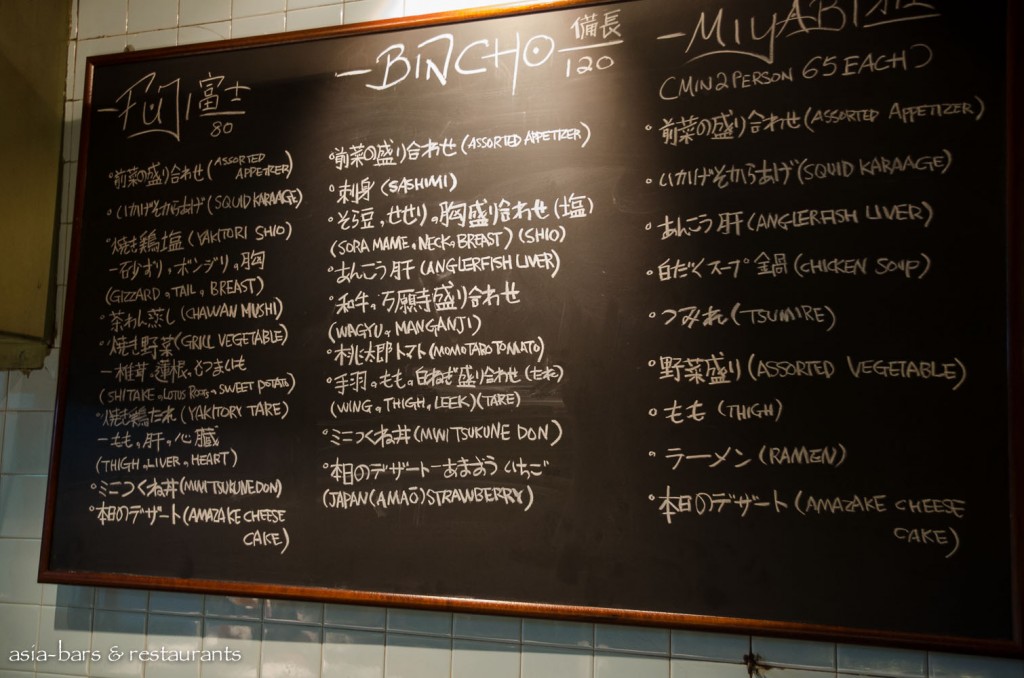 - FUJI 富士
80
°前菜の盛り合わせ (ASSORTED
APPETIZER)
°いかげそからあげ (SQUID KARAAGE)
°焼き鶏塩 (YAKITORI SHIO)
ー砂ずり。ボンジリ。胸
(GIZZARD。TAIL。BREAST)
°茶わん蒸し (CHAWAN MUSHI)
°焼き野菜 (GRILL VEGETABLE)
ー椎茸。蓮根。さつまいも
(SHITAKE。LOTUS ROOT。SWEET POTATO)
°焼き鶏たれ (YAKITORY TARE)
ーもも。肝。心臓
(THIGH。LIVER。HEART)
°ミニつくね丼 (MINI TSUKUNE DON)
°本日のデザート (AMAZAKE CHEESE
CAKE)
- BINCHO 備長
120
°前菜の盛り合わせ (ASSORTED APPETIZER)
°刺身 (SASHIMI)
°そら豆。せせり。胸盛り合わせ (塩)
(SORA MAME。NECK。BREAST) (SHIO)
°あんこう肝 (ANGLERFISH LIVER)
°和牛。万願寺盛り合わせ
(WAGYU。MANGANJI)
°桃太郎トマト (MOMOTARO TOMATO)
°手羽。もも。白ねぎ盛り合わせ (たれ)
(WING。THIGH。LEEK) (TARE)
°ミニつくね丼 (MINI TSUKUNE DON)
°本日のデザートーあまおういちご
(JAPAN (AMAŌ) STRAWBERRY)
- MIYABI 雅
(MIN 2 PERSON 65 EACH)
°前菜の盛り合わせ (ASSORTED APPETIZER)
°いかげそからあげ (SQUID KARAAGE)
°あんこう肝 (ANGLERFISH LIVER)
°白だくスープ鍋 (CHICKEN SOUP)
°つみれ (TSUMIRE)
°野菜盛り (ASSORTED VEGETABLE)
°もも (THIGH)
°ラーメン (RAMEN)
°本日のデザート (AMAZAKE CHEESE
CAKE)
asia-bars & restaurants